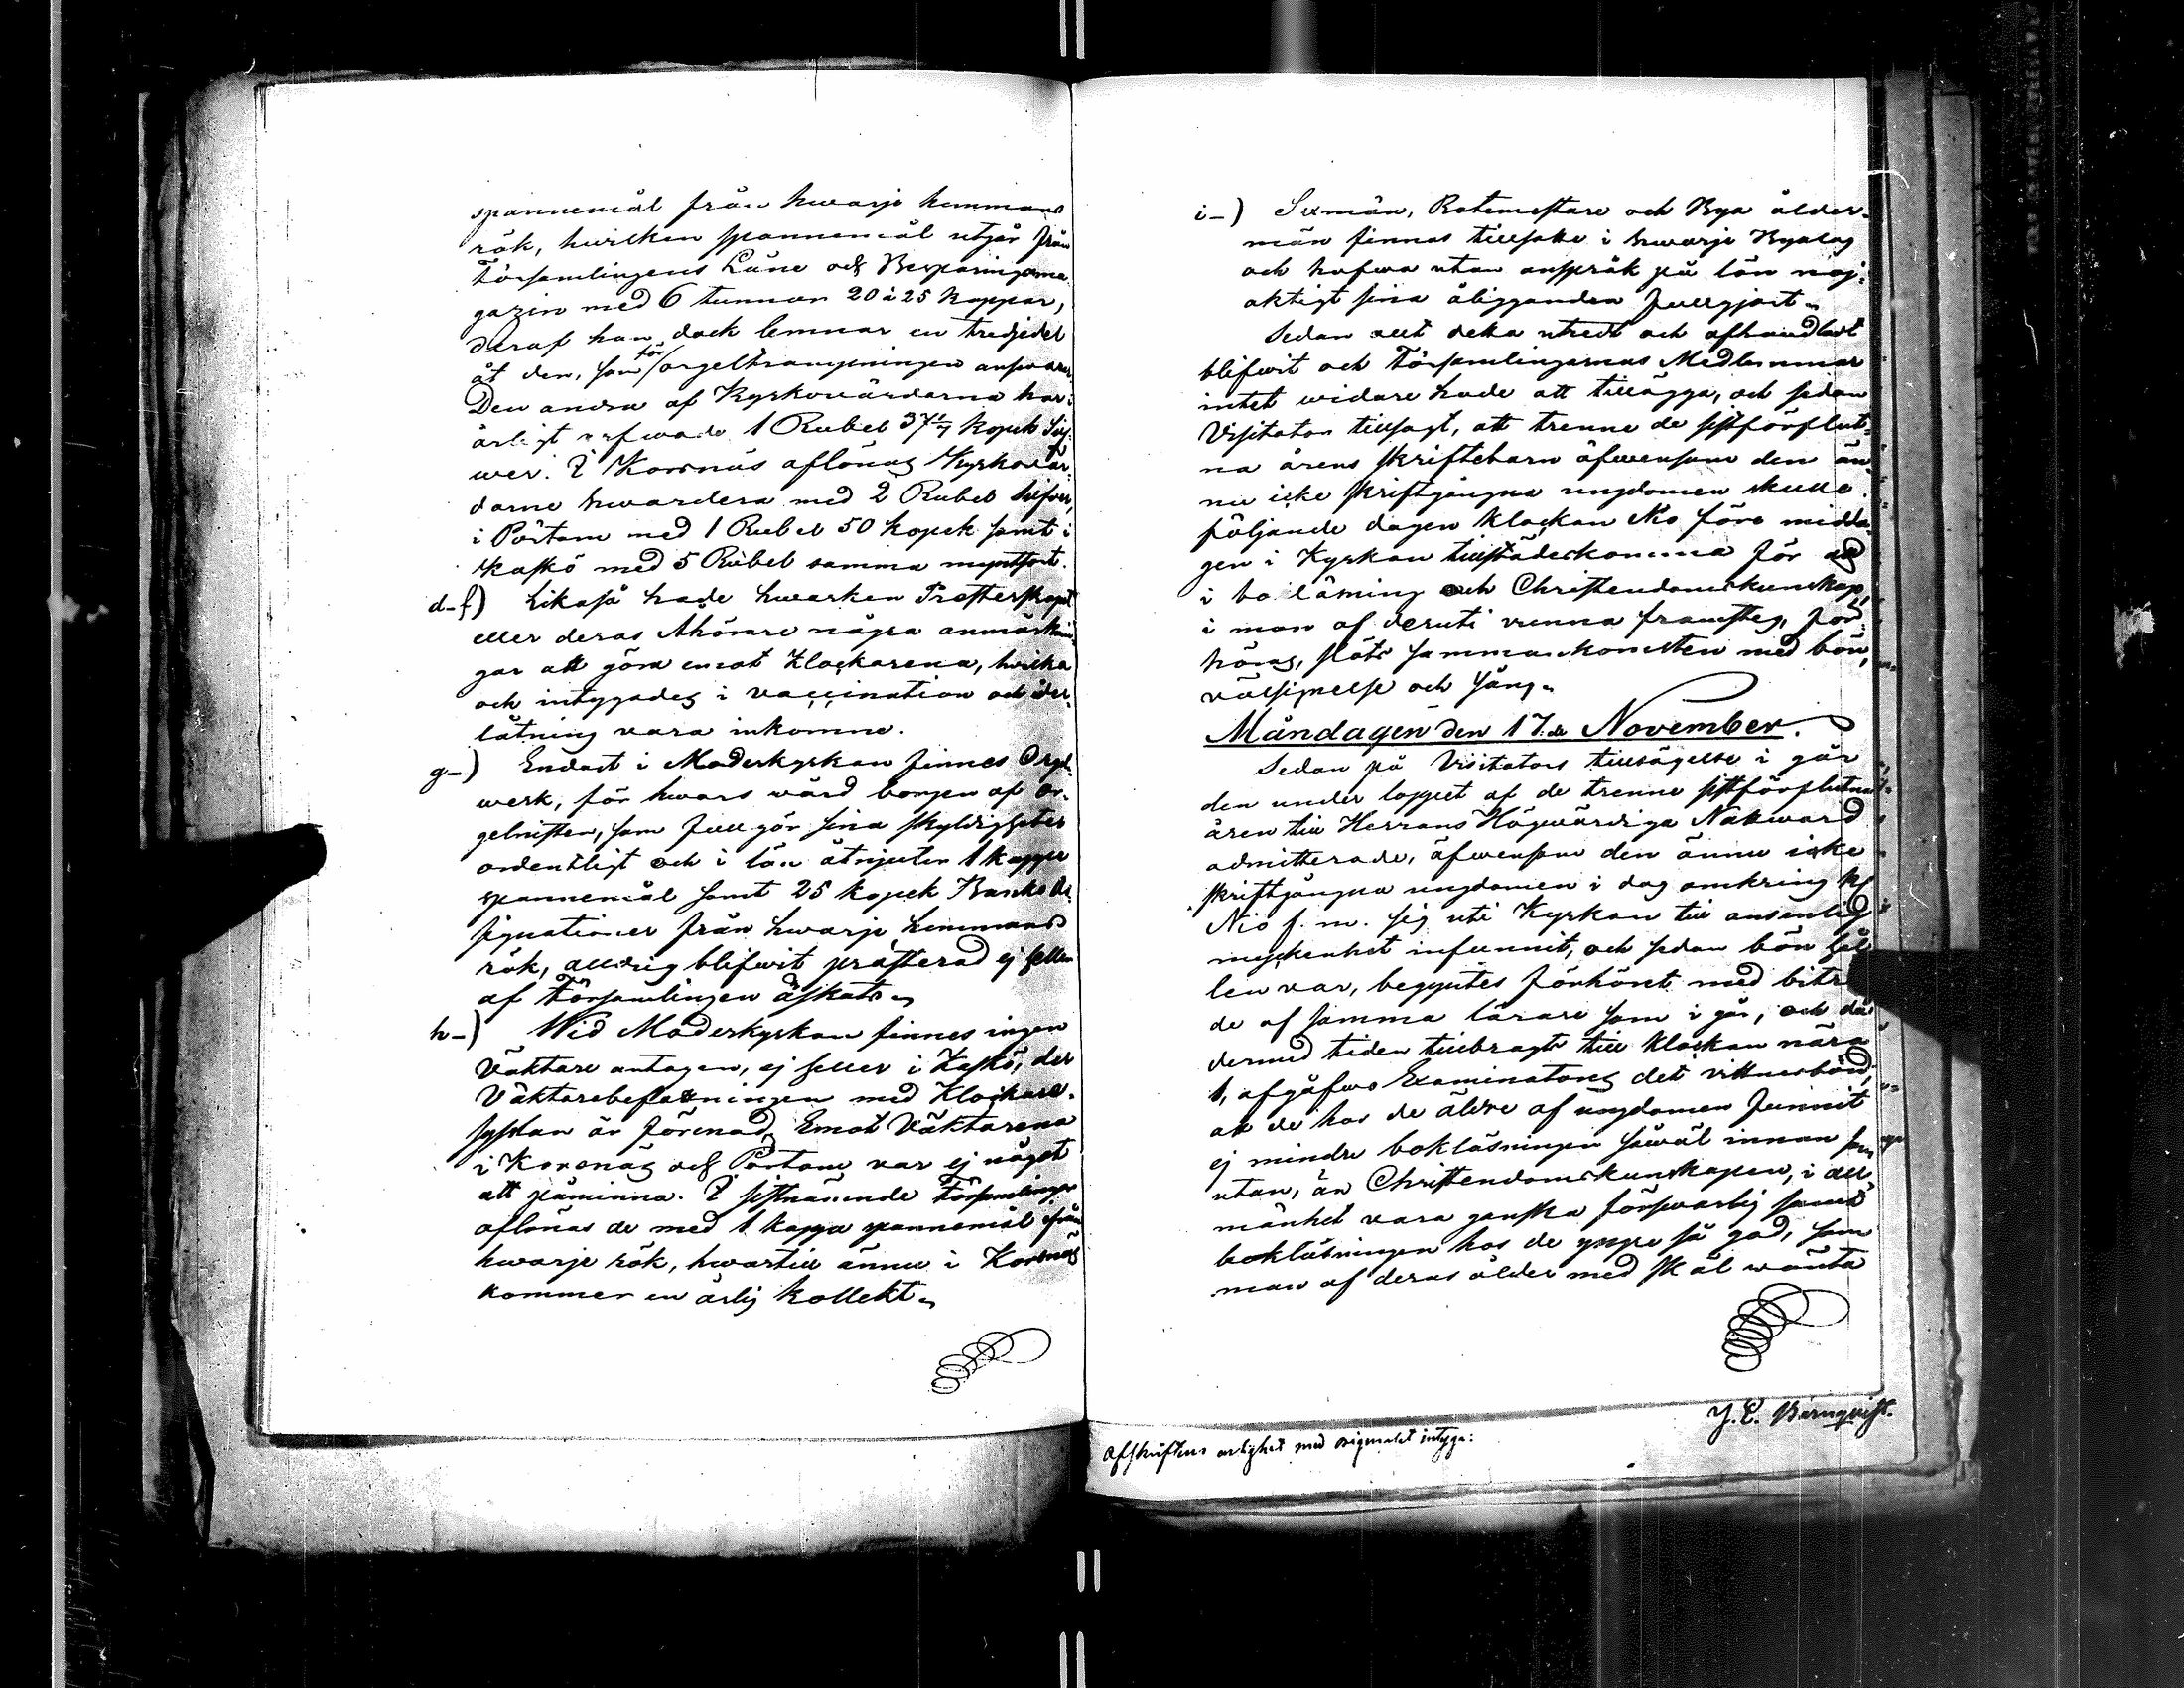 spannemål från hwarje hemmans
rök, hwilken spannemål utgår från
Församlingens Låne och Besparingsma
gazin med 6 tunnor 20 à 25 kappar,
deraf han dock lemnar en tredjedel
åt den, som för orgeltrampningen answarar.
Den andra af Kyrkowärdarna har
årligt arfwode 1 Rubel 37 1/7 kopek Silf-
wer. I Korsnäs aflönas Kyrkowär-
darne hwardera med 2 Rubel Silfwer,
i Pörtom med 1 Rubel 50 kopek samt i
Kaskö med 5 Rubel samma myntsort.
d-f) Likaså hade hwarken Presterskapet
eller deras Åhörare några anmärknin-
gar att göra emot Klockarena, hwilka
och intygades i vaccination och åder-
låtning vara inkomne.
g-) Endast i Moderkyrkan finnes Orgel-
werk, för hwars wård borgen af or-
gelnisten, som fullgör sina skyldigheter
ordentligt och i lön åtnjuter 1 kappe
spannemål samt 25 kopek Banko As-
signationer från hwarje hemmans
rök, alldrig blifwit præsterad ej heller
af Församlingen äskats.
h-) Wid Moderkyrkan finnes ingen
Väktare antagen, ej heller i Kaskö, der
Väktarebefattningen med Klockare-
sysslan är förenad. Emot Väktarena
i Korsnäs och Pörtom var ej något
att påminna. I sistnämnde Församlingar
aflönas de med 1 kappa spannemål från
hwarje rök, hwartill ännu i Korsnäs
kommer en årlig kollekt.
i-) Sexmän, Rotemästare och Bya ålder-
män finnas tillsatte i hwarje Byalag
och hafwa utan anspråk på lön noj-
aktigt sina åligganden fullgjort.
Sedan allt detta utredt och afhandladt
blifwit och Församlingarnas Medlemmar
intet widare hade att tillägga, och sedan
Visitator tillsagt, att trenne de sistförflut-
na årens skriftebarn äfwensom den än-
nu icke skriftgångna ungdomen skulle
följande dagen klockan Nio före midda-
gen i Kyrkan tillstädeskomma för att
i bokläsning och Christendomskunskap,
i mon af deruti vunna framsteg, för-
höras, slöts sammankomsten med bön,
välsignelse och sång.
Måndagen den 17:de November.
Sedan på Visitators tillsägelse i går
den under loppet af de trenne sistförflutna
åren till Herrans Högwärdiga Nattward
admitterade, äfwensom den ännu icke
skriftgångna ungdomen i dag omkring kl
Nio f. m. sig uti Kyrkan till ansenlig
myckenhet infunnit, och sedan bön hål-
len var, begyntes förhöret med biträ
de af samma lärare som i går, och då
dermed tiden tillbragts till klockan nära
1, afgåfwo Examinatores det vittnesbörd,
att de hos de äldre af ungdomen funnit
ej mindre bokläsningen såwäl innan som
utan, än Christendomskunskapen, i all-
mänhet vara ganska förswarlig samt
bokläsningen hos de yngre så god, som
man af deras ålder med skäl wänta
J. E. Bärnqvist.
Afskriftens ärlighet med originalet intyga: